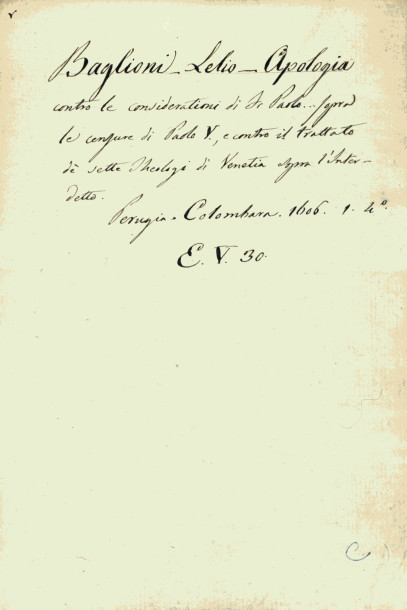 Baglioni - Lelio - Apologia
contro le considerationi di Fr Paolo... sopra
le censure di Paolo V., e contro il trattato
de sette Theologi di Venetia sopra l'Inter-
detto.
Perugia. Colombara. 1606. 1. 4º.
E. V. 30.